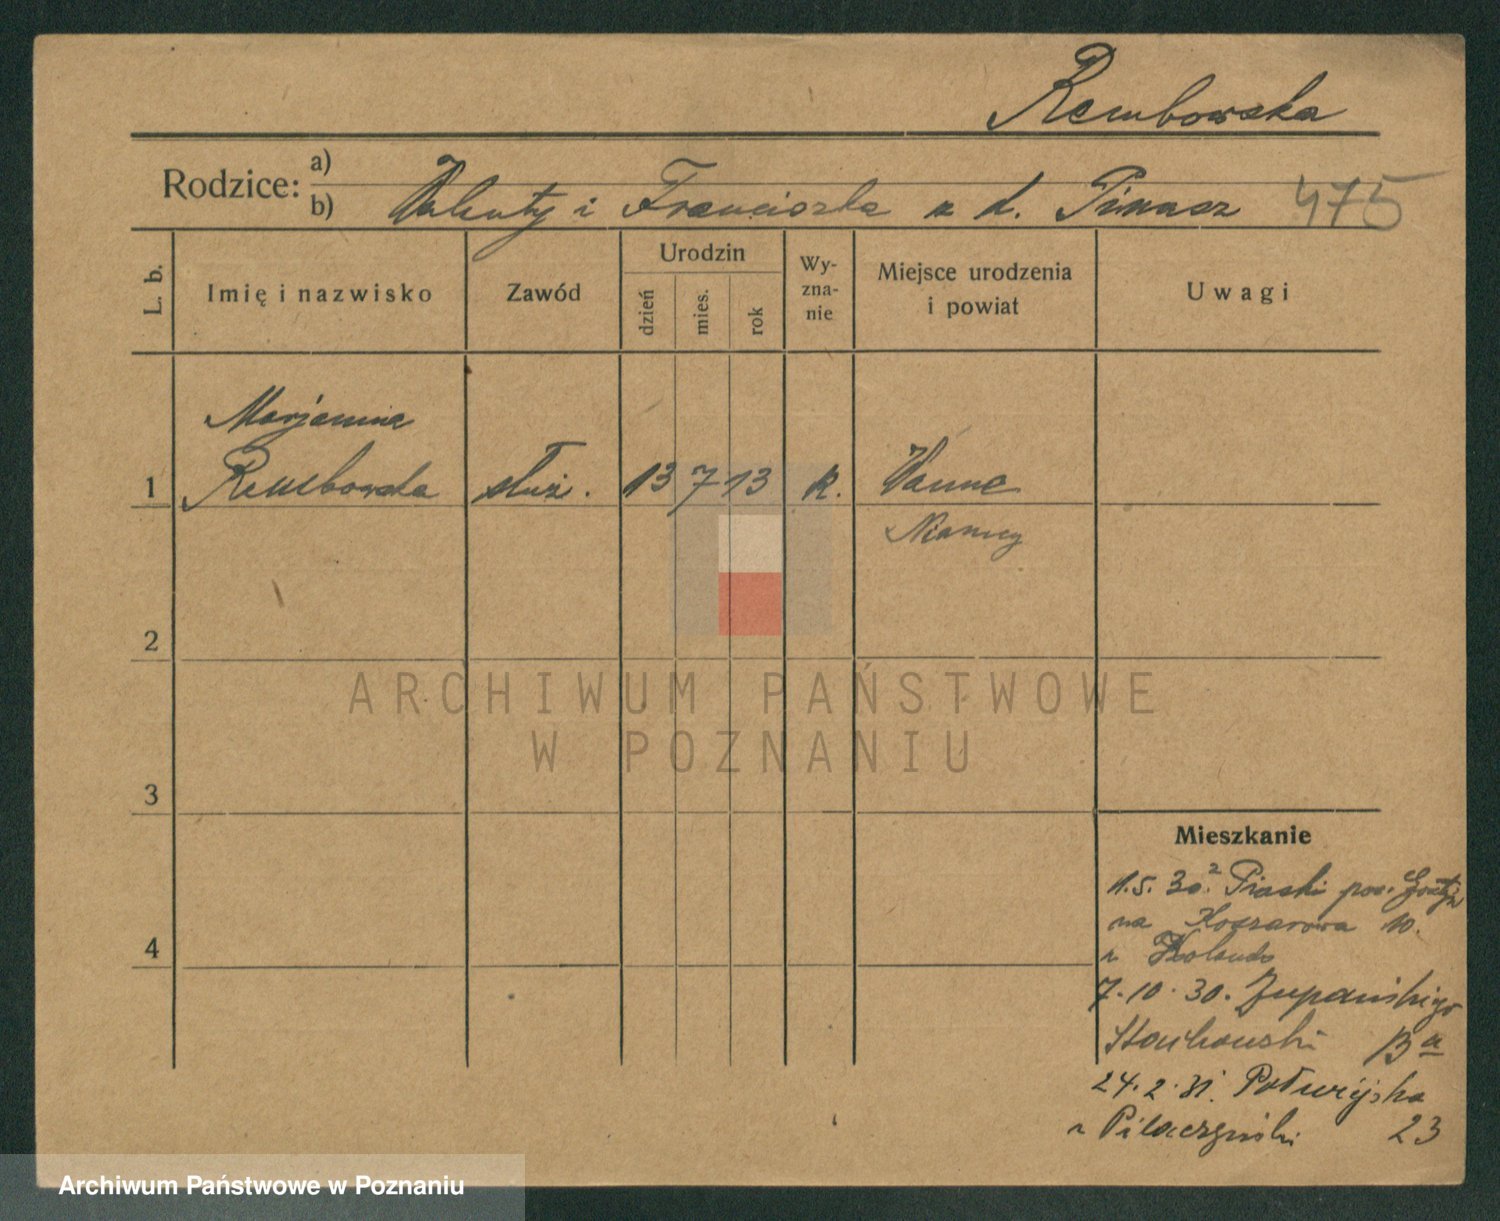 Rembowska
Rodzice: a)
b) Walenty i Franciszka z d. Pimasz 475
L. b.
Imię i nazwisko
Zawód
Urodzin
dzień
mies.
rok
Wy-
zna-
nie
Miejsce urodzenia
i powiat
Uwagi
Marjanna
1 Rembowska służ. 13 7 13 k. Wanne
Niemcy
2
3
4
Mieszkanie
11.5.30. z Piaski pow. Gostyń
na Koszarowa 10.
7.10.30. Żupańskiego
Stachowski
24.2.31. Półwiejska
23
ARCHIWUM PAŃSTWOWE
W POZNANIU
Archiwum Państwowe w Poznaniu